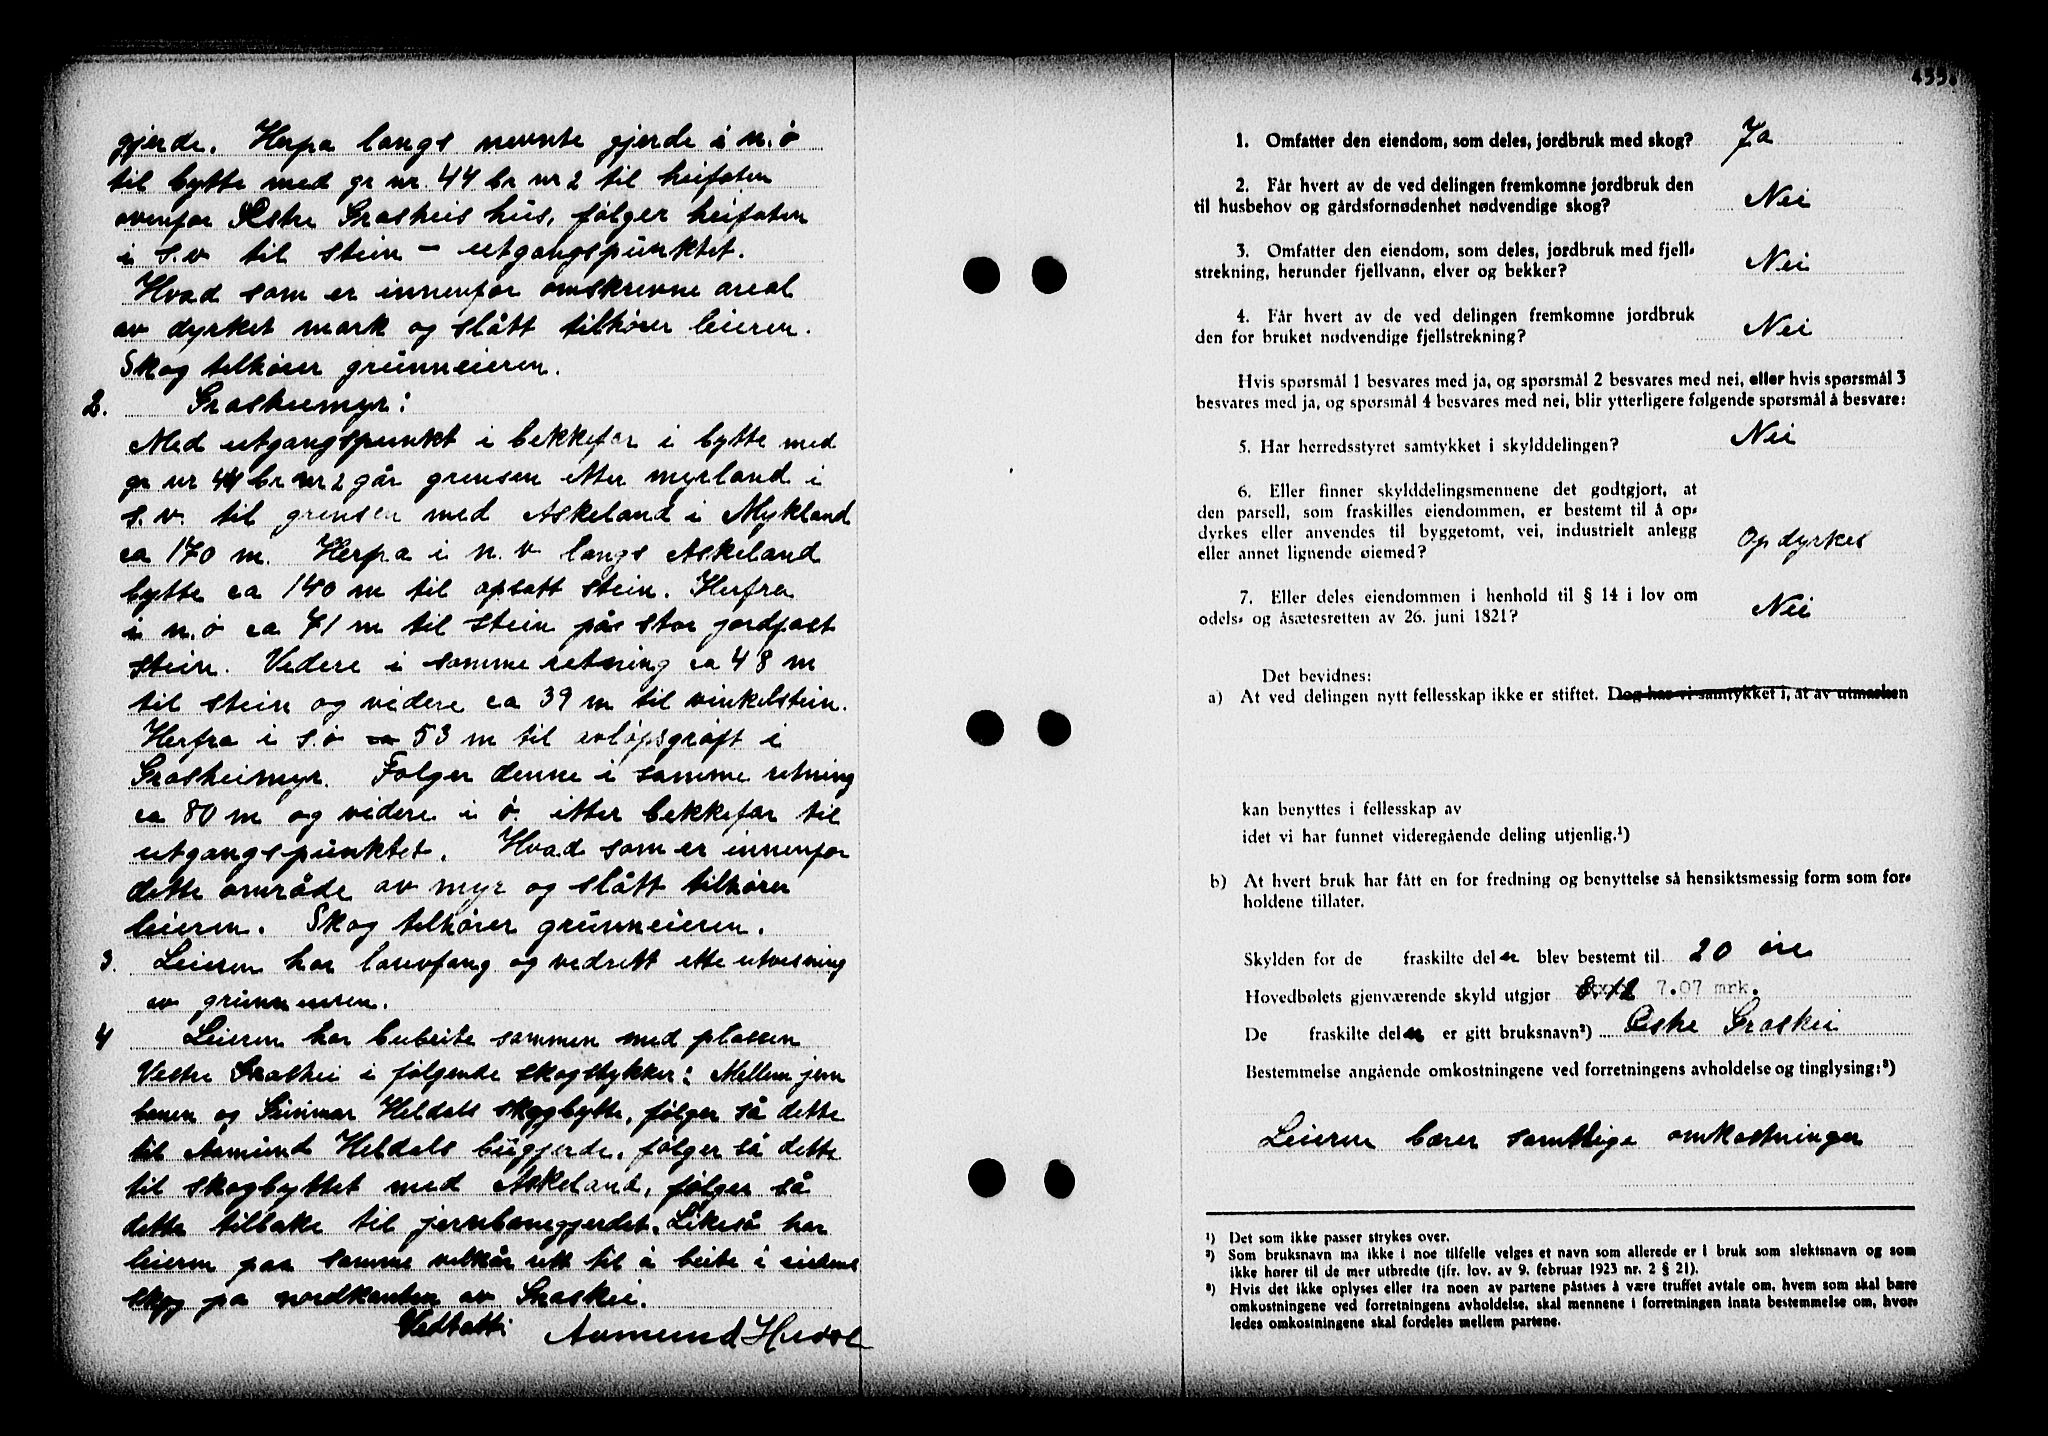 gjerde. Herfra langs nevnte gjerde i n.ø
til bytte med gr nr. 44 br nr 2 til heifoten
ovenfor Østre Grosheis hus, følger heifoten
i s.v til stein – utgangspunktet.
Hvad som er innenfor omskrevne areal
av dyrket mark og slått tilhører leieren.
Skog tilhører grunneieren.
2. Grosheimyr:
Med utgangspunkt i bekkefar i bytte med
gr nr 44 br nr 2 går grensen etter myrland i
s.v. til grensen med Askeland i Mykland
ca 170 m. Herfra i n.v langs Askeland
bytte ca 140 m til opsatt stein. Herfra
i n.ø ca 71 m til stein på stor jordfast
stein. Videre i samme retning ca 48 m
til stein og videre ca 39 m til vinkelstein.
Herfra i s.ø ca 53 m til avløpsgrøft i
Grosheimyr. Følger denne i samme retning
ca 80 m og videre i ø. etter bekkefar til
utgangspunktet. Hvad som er innenfor
dette område av myr og slått tilhører
leieren. Skog tilhører grunneieren.
3. Leieren har lauvfang og vedrett ette utvisning
av grunneieren.
4 Leieren har bubeite sammen med plassen
Vestre Groshei i følgende skogstykker: Mellem jern
banen og Gunnar Heldals skogbytte, følger så dette
til Aamund Heldals bugjerde, følger så dette
til skogbyttet med Askeland, følger så
dette tilbake til jernbanegjerdet. Likeså har
leieren paa samme vilkår rett til å beite i
skog på nordkanten av Groshei.
Vedtatt: Aamund Heldal
1. Omfatter den eiendom, som deles, jordbruk med skog? Ja
2. Får hvert av de ved delingen fremkomne jordbruk den
til husbehov og gårdsfornødenhet nødvendige skog? Nei
3. Omfatter den eiendom, som deles, jordbruk med fjell-
strekning, herunder fjellvann, elver og bekker? Nei
4. Får hvert av de ved delingen fremkomne jordbruk
den for bruket nødvendige fjellstrekning? Nei
Hvis spørsmål 1 besvares med ja, og spørsmål 2 besvares med nei, eller hvis spørsmål 3
besvares med ja, og spørsmål 4 besvares med nei, blir ytterligere følgende spørsmål å besvare:
5. Har herredsstyret samtykket i skylddelingen? Nei
6. Eller finner skylddelingsmennene det godtgjort, at
den parsell, som fraskilles eiendommen, er bestemt til å op-
dyrkes eller anvendes til byggetomt, vei, industrielt anlegg
eller annet lignende øiemed? Opdyrkes
7. Eller deles eiendommen i henhold til § 14 i lov om
odels- og åsætesretten av 26. juni 1821? Nei
Det bevidnes:
a) At ved delingen nytt fellesskap ikke er stiftet. Dog har vi samtykket i, at av utmarken
kan benyttes i fellesskap av
idet vi har funnet videregående deling utjenlig.¹)
b) At hvert bruk har fått en for fredning og benyttelse så hensiktsmessig form som for-
holdene tillater.
Skylden for de fraskilte del er blev bestemt til 20 øre
Hovedbølets gjenværende skyld utgjør 8.12 7.07 mrk.
De fraskilte del er er gitt bruksnavn²) Østre Groshei
Bestemmelse angående omkostningene ved forretningens avholdelse og tinglysing:³)
Leieren bærer samtlige omkostninger
¹) Det som ikke passer strykes over.
²) Som bruksnavn må ikke i noe tilfelle velges et navn som allerede er i bruk som slektsnavn og som
ikke hører til de mer utbredte (jfr. lov. av 9. februar 1923 nr. 2 § 21).
³) Hvis det ikke oplyses eller fra noen av partene påstaes å være truffet avtale om, hvem som skal bære
omkostningene ved forretningens avholdelse, skal mennene i forretningen innta bestemmelse om, hvor-
ledes omkostningene skal fordeles mellem partene.